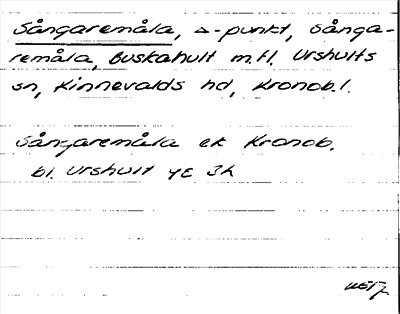 Sångaremåla, △-punkt, Sånga-
remåla, Buskahult m.fl. Urshults
sn, Kinnevalds hd, Kronob.l.
Sångaremåla ek Kronob.
bl. Urshult 4E 3h